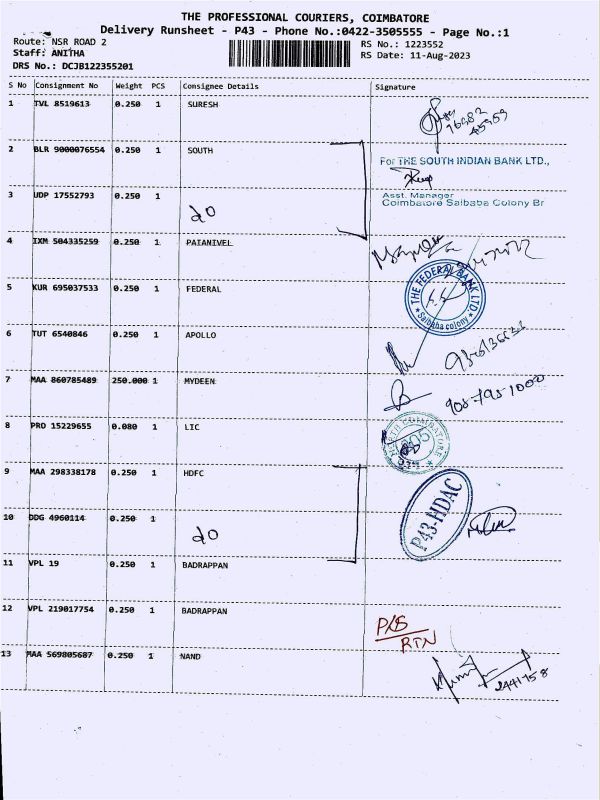 THE PROFESSIONAL COURIERS, COIMBATORE
Delivery Runsheet - P43 - Phone No.:0422-3505555 - Page No.:1
Route: NSR ROAD 2
RS No.: 1223552
Staff: ANITHA
RS Date: 11-Aug-2023
DRS No.: DCJB122355201
S No Consignment No Weight PCS Consignee Details Signature
1 TVL 8519613 0.250 1 SURESH
2 BLR 9000076554 0.250 1 SOUTH
For THE SOUTH INDIAN BANK LTD.,
3 UDP 17552793 0.250 1 do
Asst. Manager
Coimbatore Saibaba Colony Br
4 IXM 504335259 0.250 1 PAIANIVEL
5 KUR 695037533 0.250 1 FEDERAL
THE FEDERAL BANK LTD.
* Saibaba colony *
6 TUT 6540846 0.250 1 APOLLO
7 MAA 860785489 250.000 1 MYDEEN
908-795-1000
8 PRO 15229655 0.080 1 LIC
9 MAA 298338178 0.250 1 HDFC
P43-HDAC
10 DDG 4960114 0.250 1 do
11 VPL 19 0.250 1 BADRAPPAN
12 VPL 219017754 0.250 1 BADRAPPAN
RTN
13 MAA 569805687 0.250 1 NAND
2441758